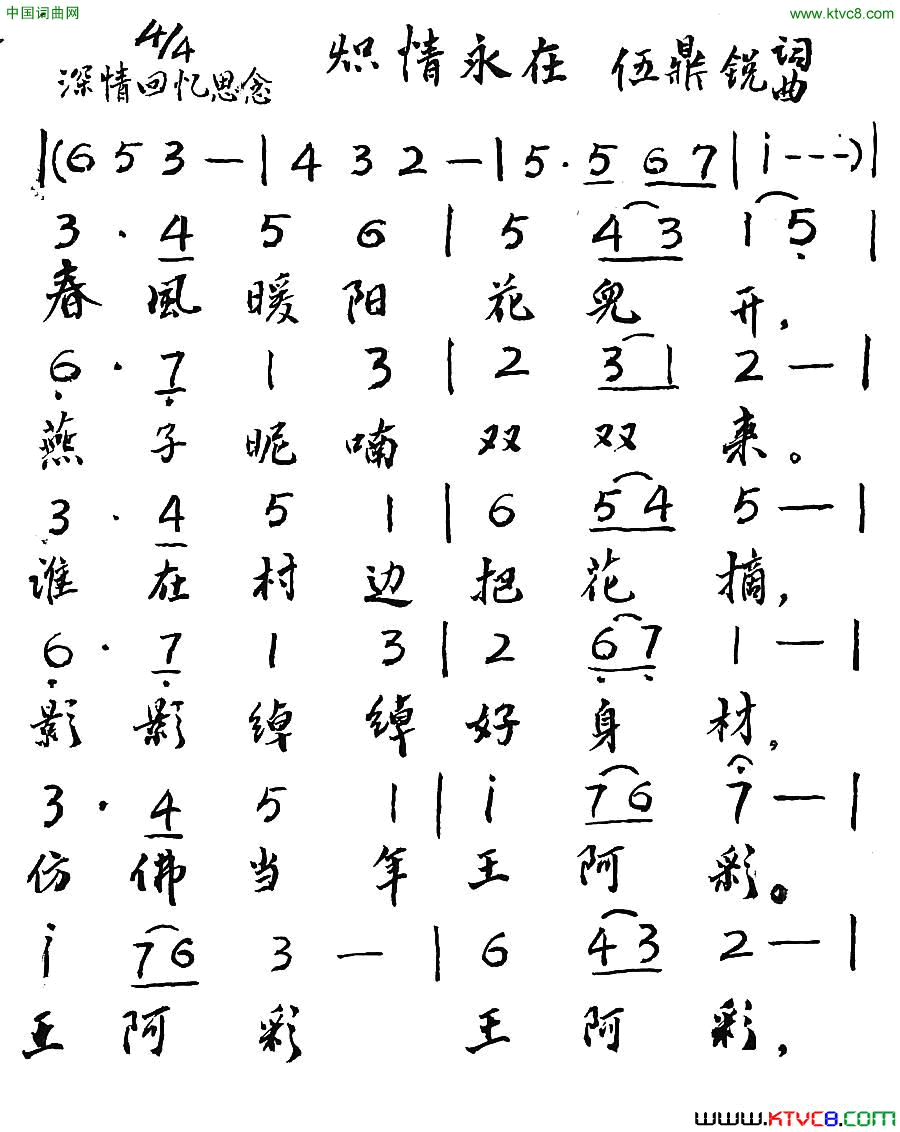 中国词曲网 www.ktvc8.com
4/4 炽情永在 伍鼎锐 词曲
深情回忆思念
|(6 5 3 —| 4 3 2 —| 5· 5 6 7 | i - - -)|
3 · 4 5 6 | 5 4 3 1 5 |
春風暖阳 花兒开,
6 · 7 1 3 | 2 3 1 2 — |
燕子昵喃双双来。
3 · 4 5 1 | 6 5 4 5 — |
谁在村边把花摘,
6 · 7 1 3 | 2 6 7 1 — |
影影绰绰好身材,
3 · 4 5 1 | i 7 6 7 — |
仿佛当年王阿彩。
i 7 6 3 — | 6 4 3 2 — |
王阿彩 王阿彩,
www.KTVC8.com